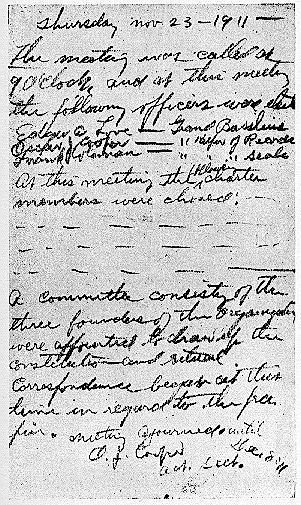 Thursday Nov 23 - 1911 -
The meeting was called at
9 O'Clock, and at this meeting
the following officers were
Edgar A. Love — Grand Basileus
Oscar J. Cooper — " Keeper of Records
Frank Coleman — " " " Seals
At this meeting the charter
members were chosed:
A committee consisty of the
three founders of the Organization
were appointed to draw up the
constitution and ritual
Correspondence began at this
time in regard to the
pin. meeting ajourned until
O. J. Cooper
act. Sect.